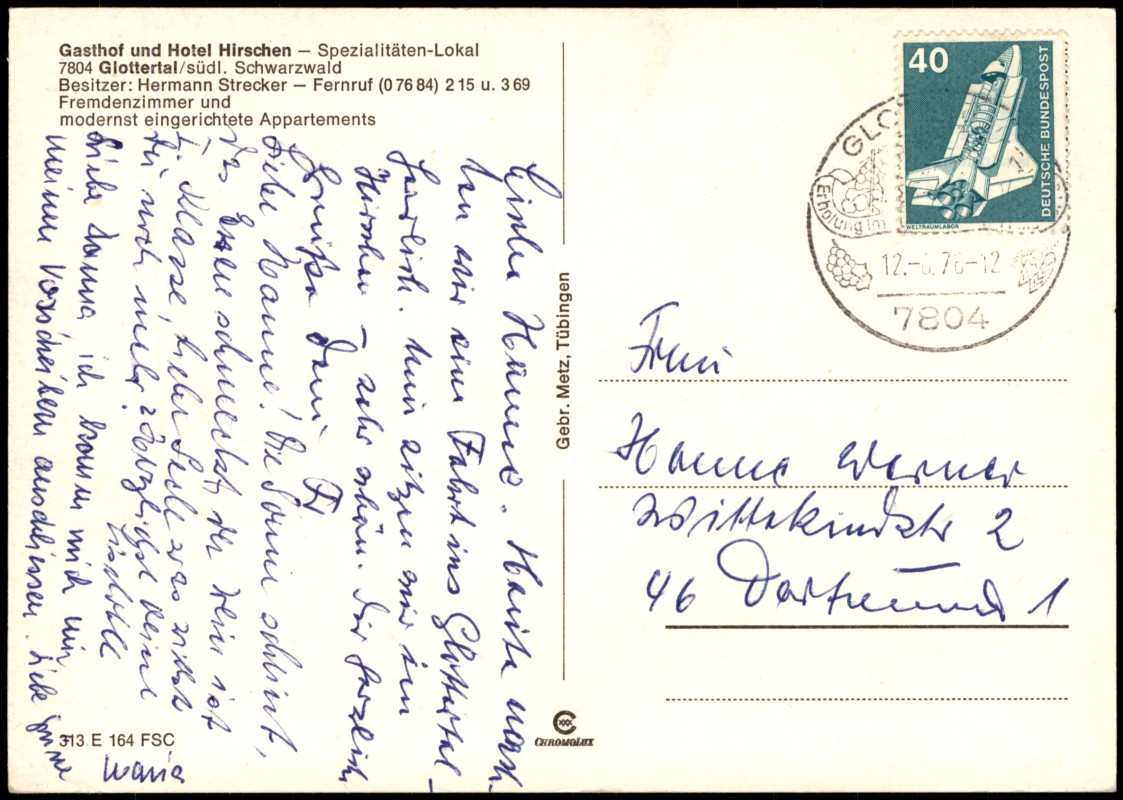 Gasthof und Hotel Hirschen – Spezialitäten-Lokal
7804 Glottertal/südl. Schwarzwald
Besitzer: Hermann Strecker – Fernruf (0 76 84) 2 15 u. 3 69
Fremdenzimmer und
modernst eingerichtete Appartements
Liebe Hanne. Heute mach-
ten wir eine Fahrt ins Glottertal –
herrlich. Nun sitzen wir im
Hirschen – sehr schön. Dir herzliche
Grüße Deine
Liebe Hanne! Die Sonne scheint,
das Essen schmeckt, der Wein ist
Ia Klasse, liebe Seele was willst
du noch mehr? Herzlichst Deine
Liselotte
Liebe Hanna, ich kann mich nur
meinen Vorschreibern anschliessen. Liebe Grüße
Maria
313 E 164 FSC
Gebr. Metz, Tübingen
CHROMOLUX
40
DEUTSCHE BUNDESPOST
WELTRAUMLABOR
GLO
Erholung im
12.-6.76-12
7804
Frau
Hanne Werner
Wittekindstr 2
46 Dortmund 1